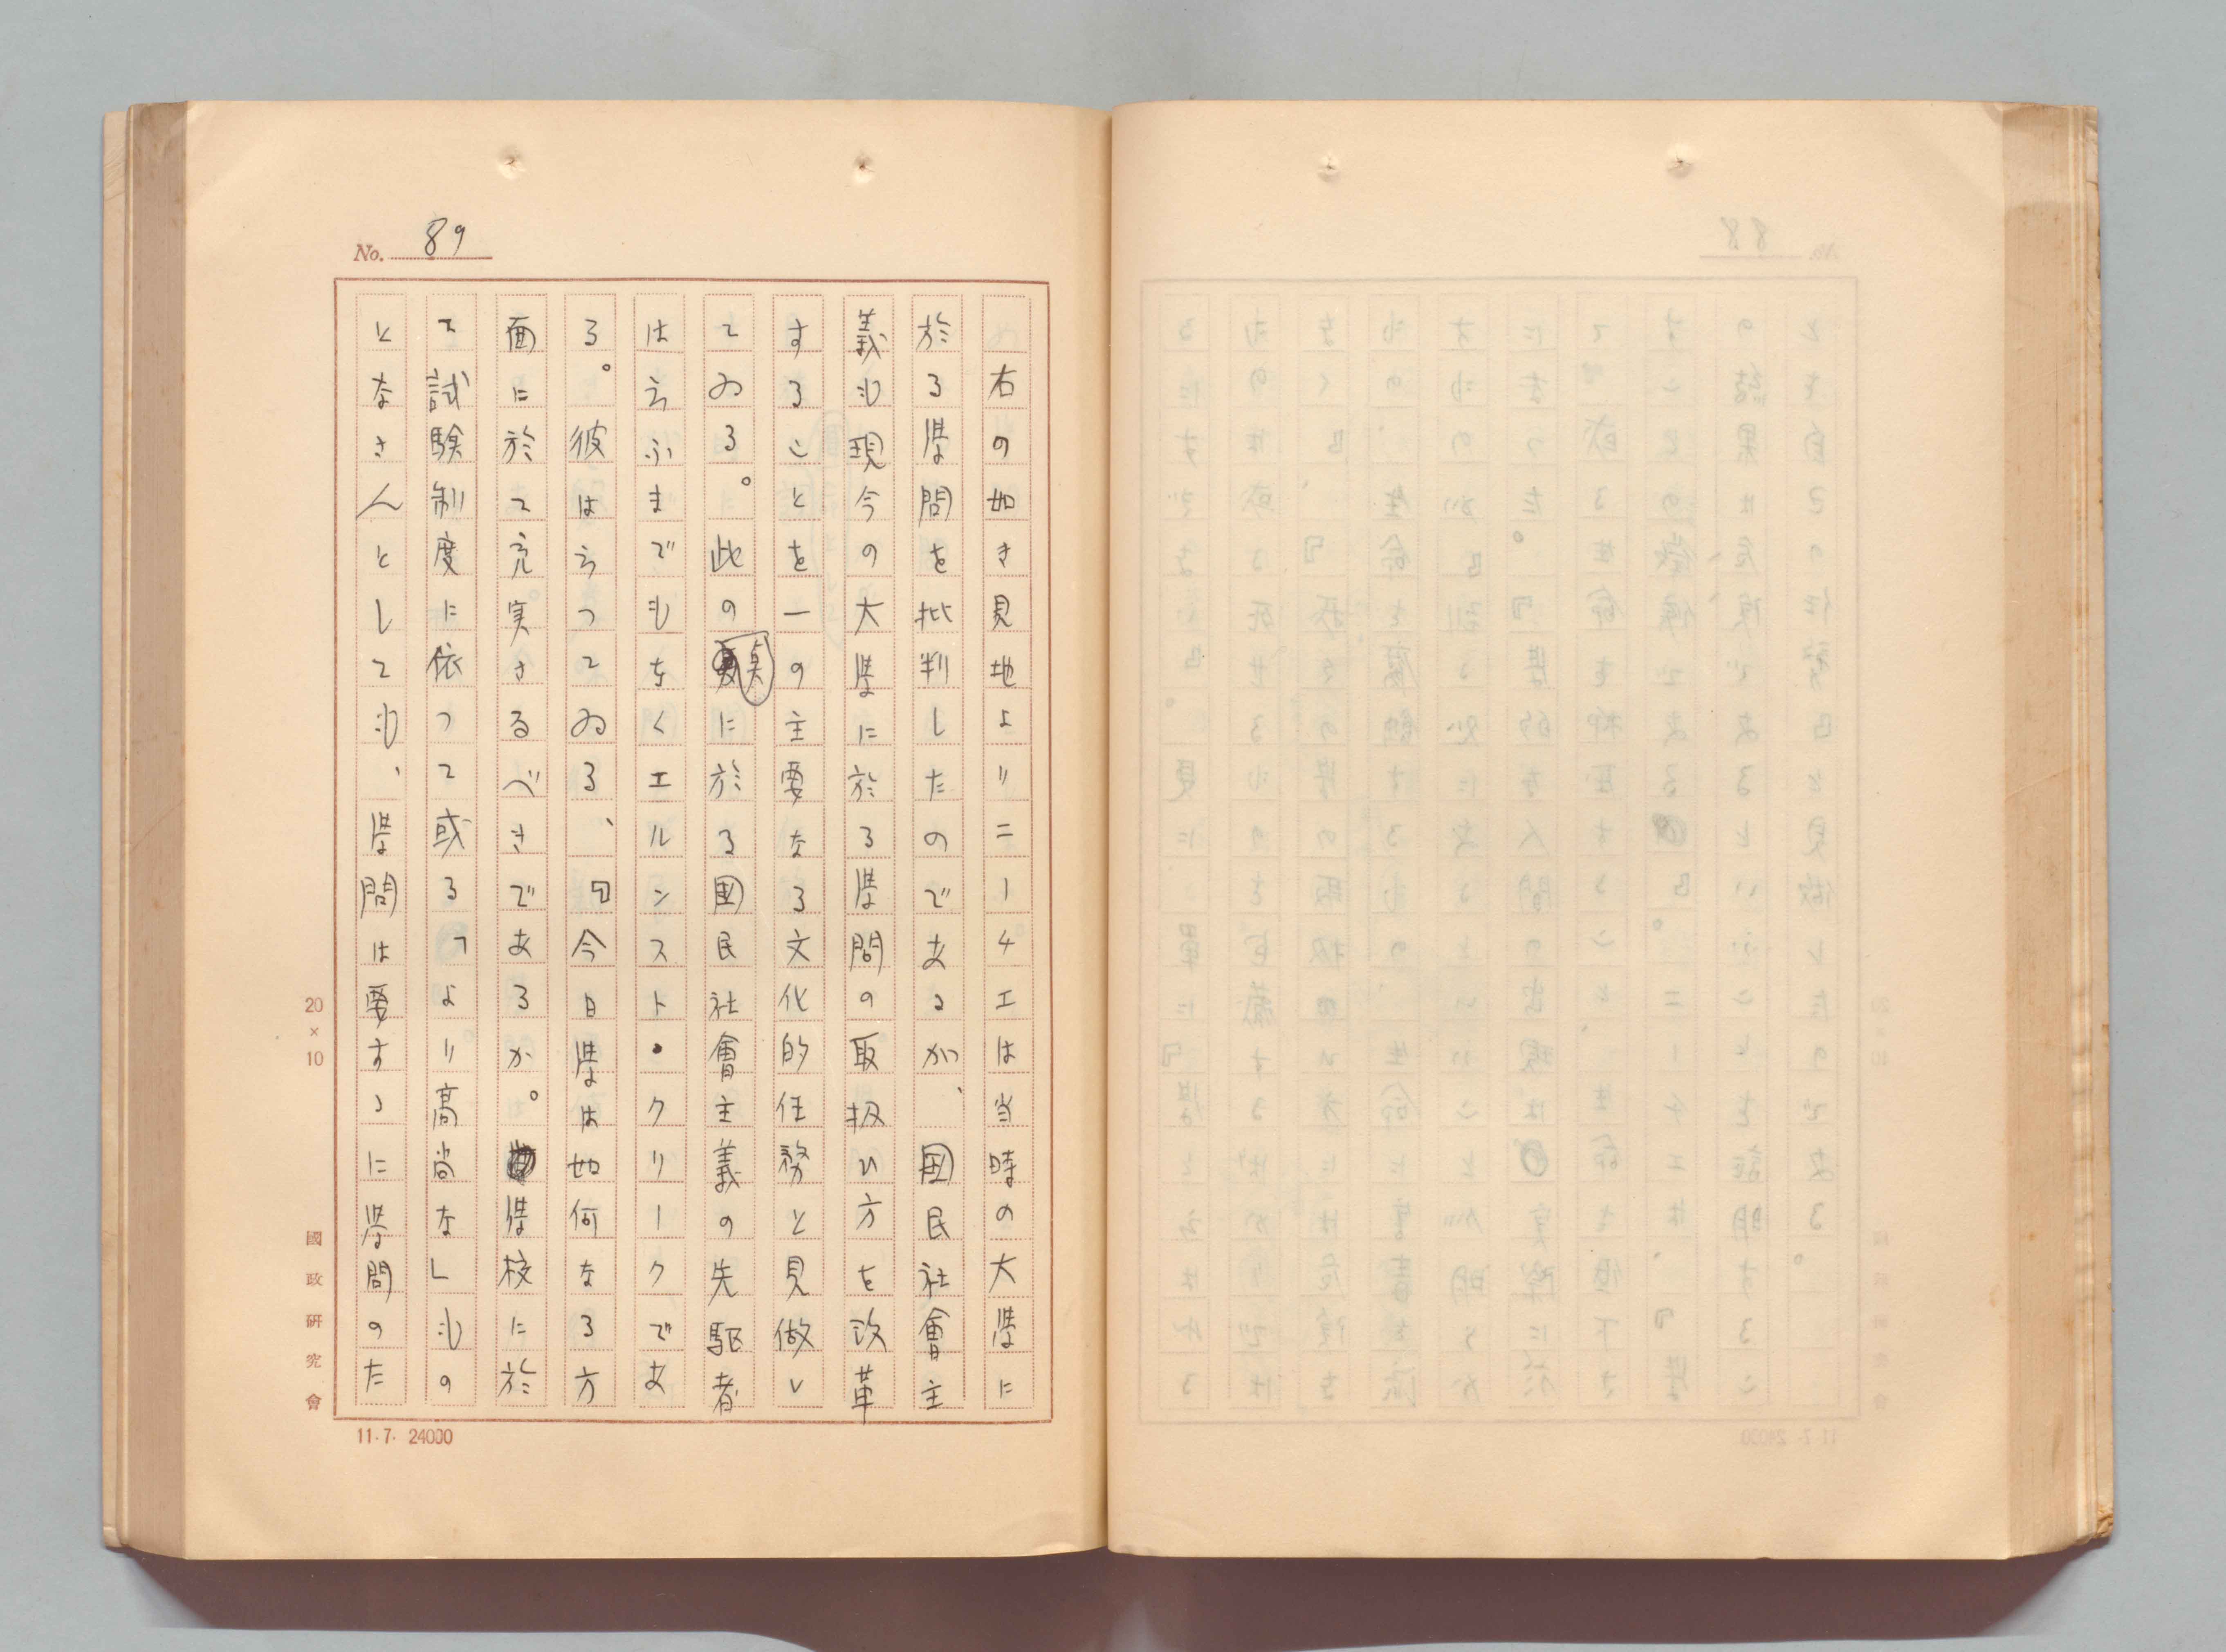 No. 89
右の如き見地よりニーチエは当時の大学に
於る学問を批判したのであるが、国民社會主
義も現今の大学に於る学問の取扱ひ方を改革
することを一の主要なる文化的任務と見做し
てゐる。此の点に於る国民社會主義の先駆者
は云ふまでもなくエルンスト・クリークであ
る。彼は云つてゐる、『今日学は如何なる方
面に於て充実さるべきであるか。学校に於
て試験制度に依つて或る「より高尚な」もの
となさんとしても、学問は要するに学問のた
20×10
國政研究會
11.7. 24000